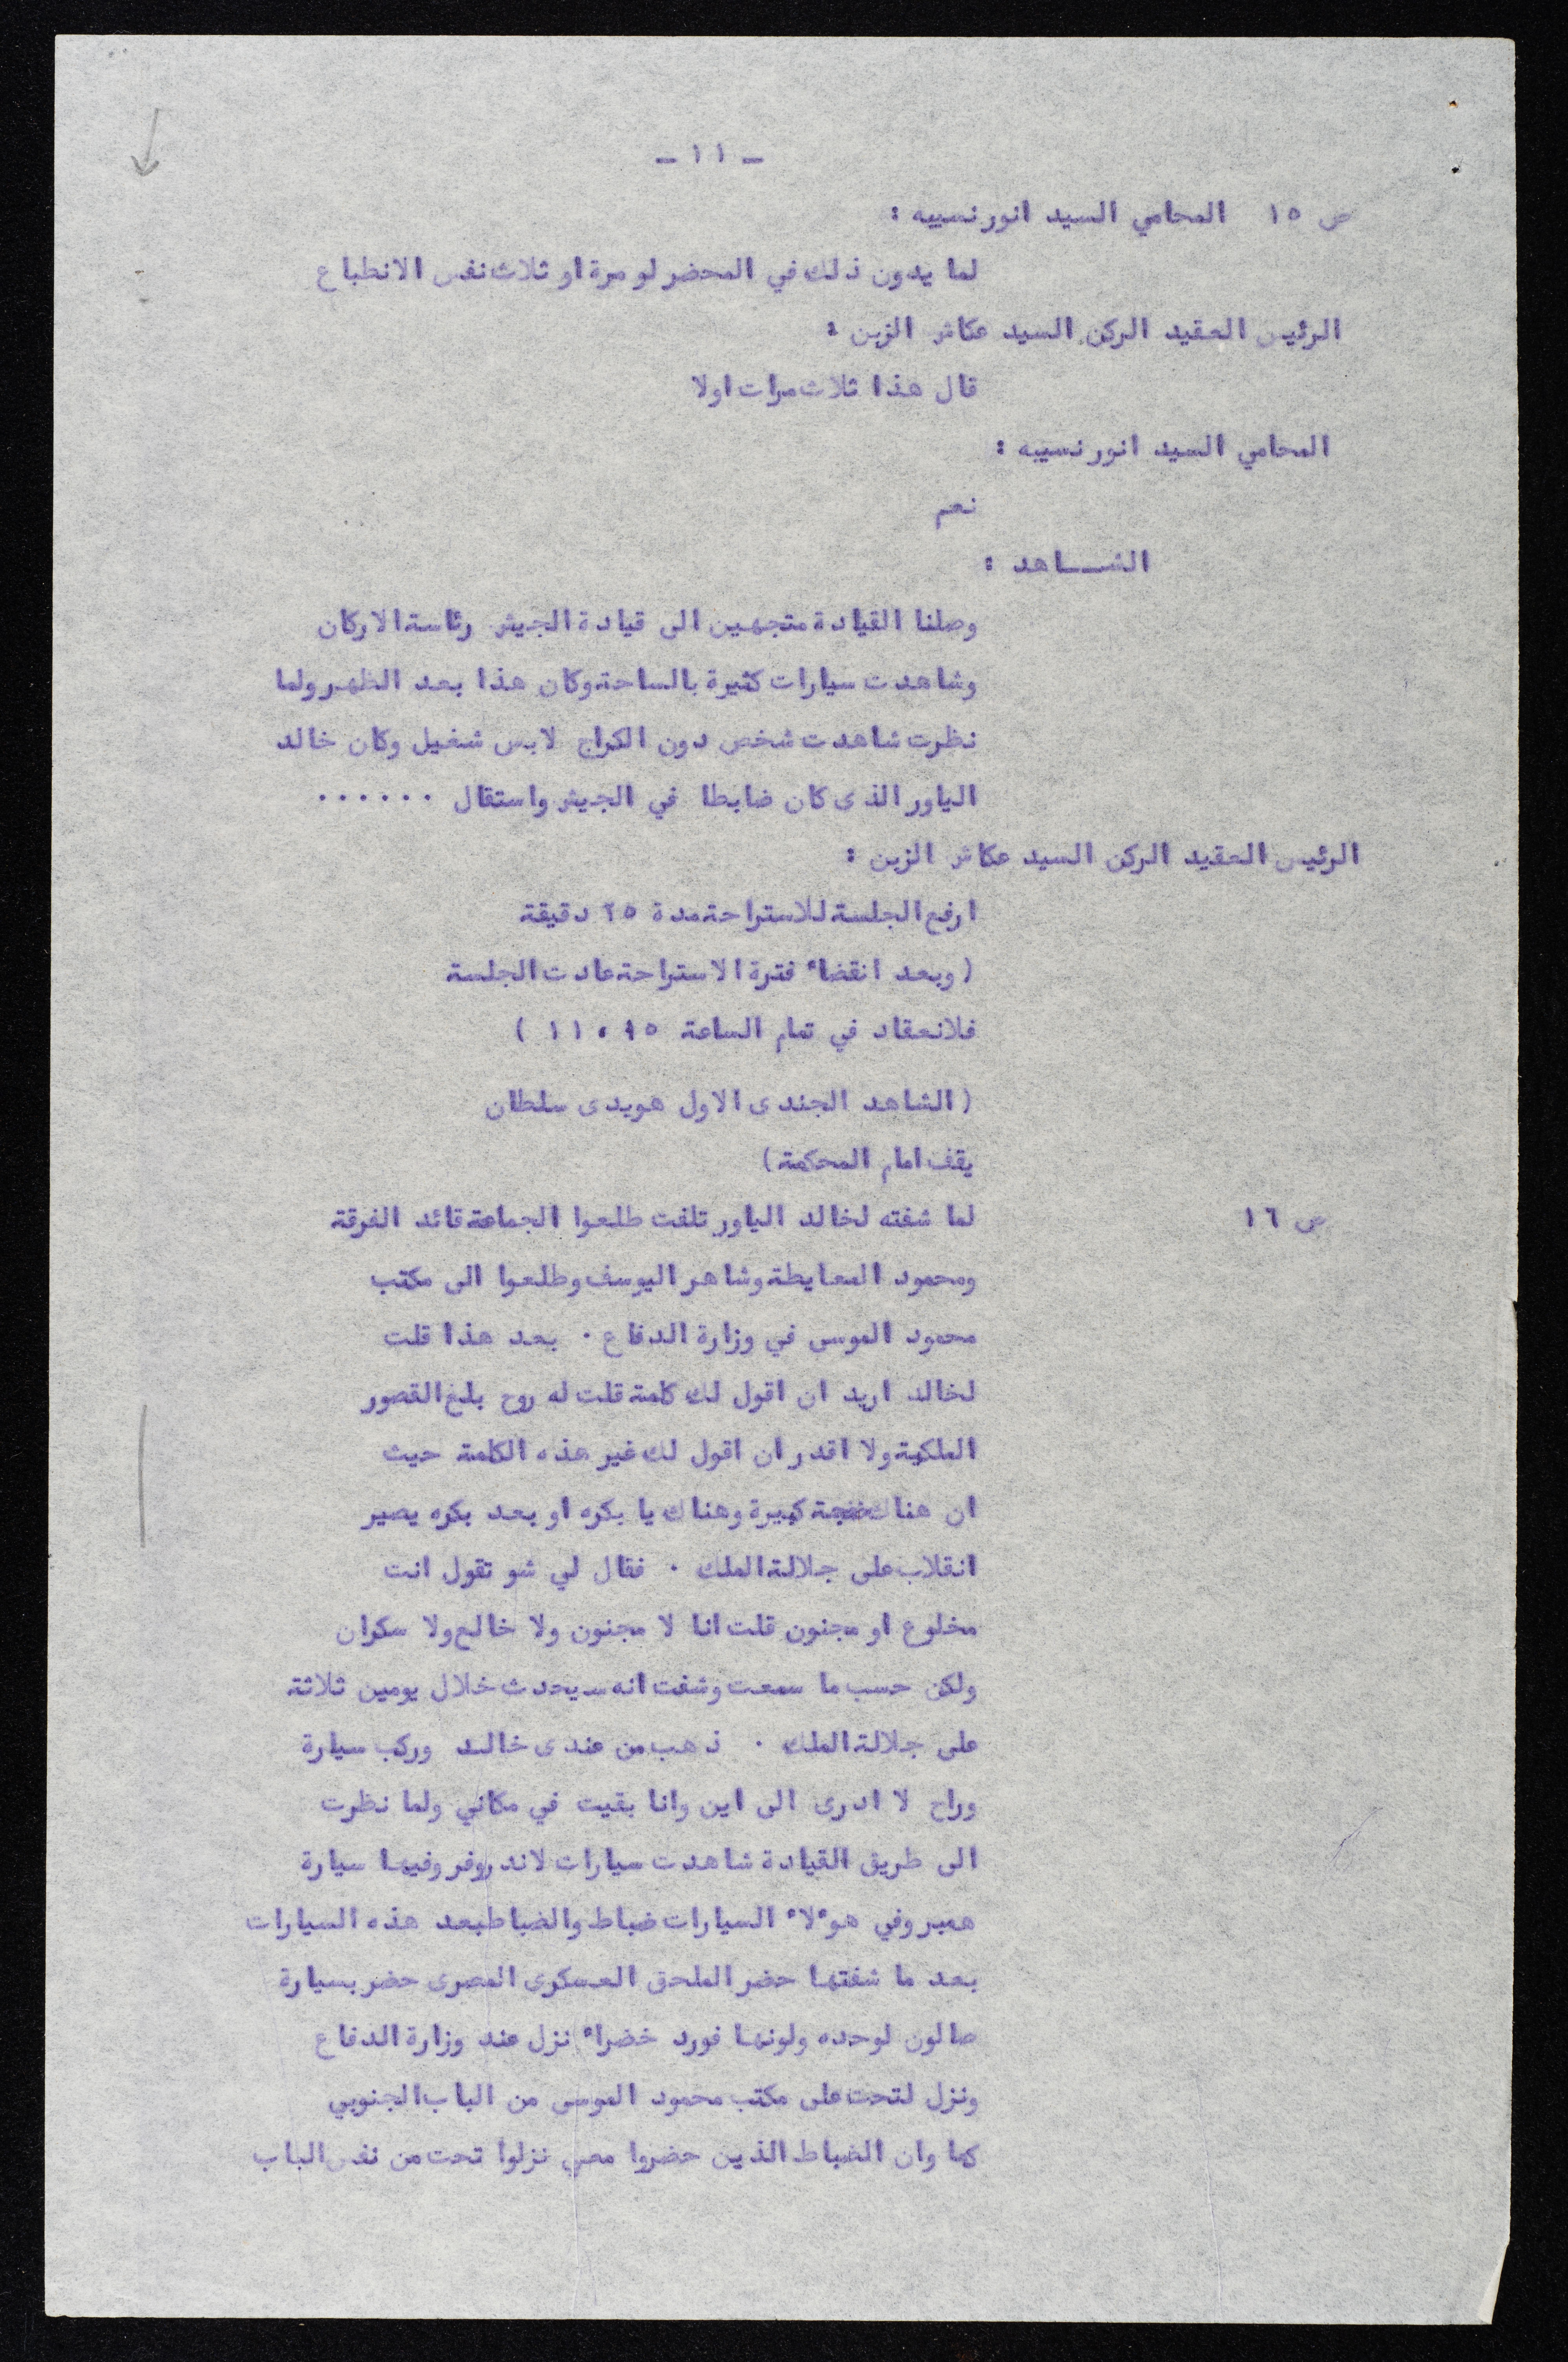 - ١١ -
ص ١٥ المحامي السيد انور نسيبه :
لما يدون ذلك في المحضر لو مرة او ثلاث نفس الانطباع
الرئيس العقيد الركن السيد عكاش الزبن :
قال هذا ثلاث مرات اولا
المحامي السيد انور نسيبه :
نعم
الشـــاهد :
وصلنا القيادة متجهين الى قيادة الجيش رئاسة الاركان
وشاهدت سيارات كثيرة بالساحة وكان هذا بعد الظهر ولما
نظرت شاهدت شخص دون الكراج لابس شغيل وكان خالد
الياور الذى كان ضابطا في الجيش واستقال ......
الرئيس العقيد الركن السيد عكاش الزبن :
ارفع الجلسة للاستراحة مدة ٢٥ دقيقة
( وبعد انقضاء فترة الاستراحة عادت الجلسة
فلانعقاد في تمام الساعة ١١،١٥ )
( الشاهد الجندى الاول هويدى سلطان
يقف امام المحكمة )
ص ١٦ لما شفته لخالد الياور تلفت طلعوا الجماعة قائد الفرقة
ومحمود المعايطة وشاهر اليوسف وطلعوا الى مكتب
محمود الموسى في وزارة الدفاع . بعد هذا قلت
لخالد اريد ان اقول لك كلمة قلت له روح بلغ القصور
الملكية ولا اقدر ان اقول لك غير هذه الكلمة حيث
ان هناك ضجة كبيرة وهناك يا بكره او بعد بكره يصير
انقلاب على جلالة الملك . فقال لي شو تقول انت
مخلوع او مجنون قلت انا لا مجنون ولا خالع ولا سكران
ولكن حسب ما سمعت وشفت انه سيحدث خلال يومين ثلاثة
على جلالة الملك . ذهب من عندى خالد وركب سيارة
وراح لا ادرى الى اين وانا بقيت في مكاني ولما نظرت
الى طريق القيادة شاهدت سيارات لاندروفر وفيها سيارة
همبر وفي هوءلاء السيارات ضباط والضباط بعد هذه السيارات
بعد ما شفتها حضر الملحق العسكرى المصرى حضر بسيارة
صالون لوحده ولونها فورد خضراء نزل عند وزارة الدفاع
ونزل لتحت على مكتب محمود الموسى من الباب الجنوبي
كما وان الضباط الذين حضروا معي نزلوا تحت من نفس الباب